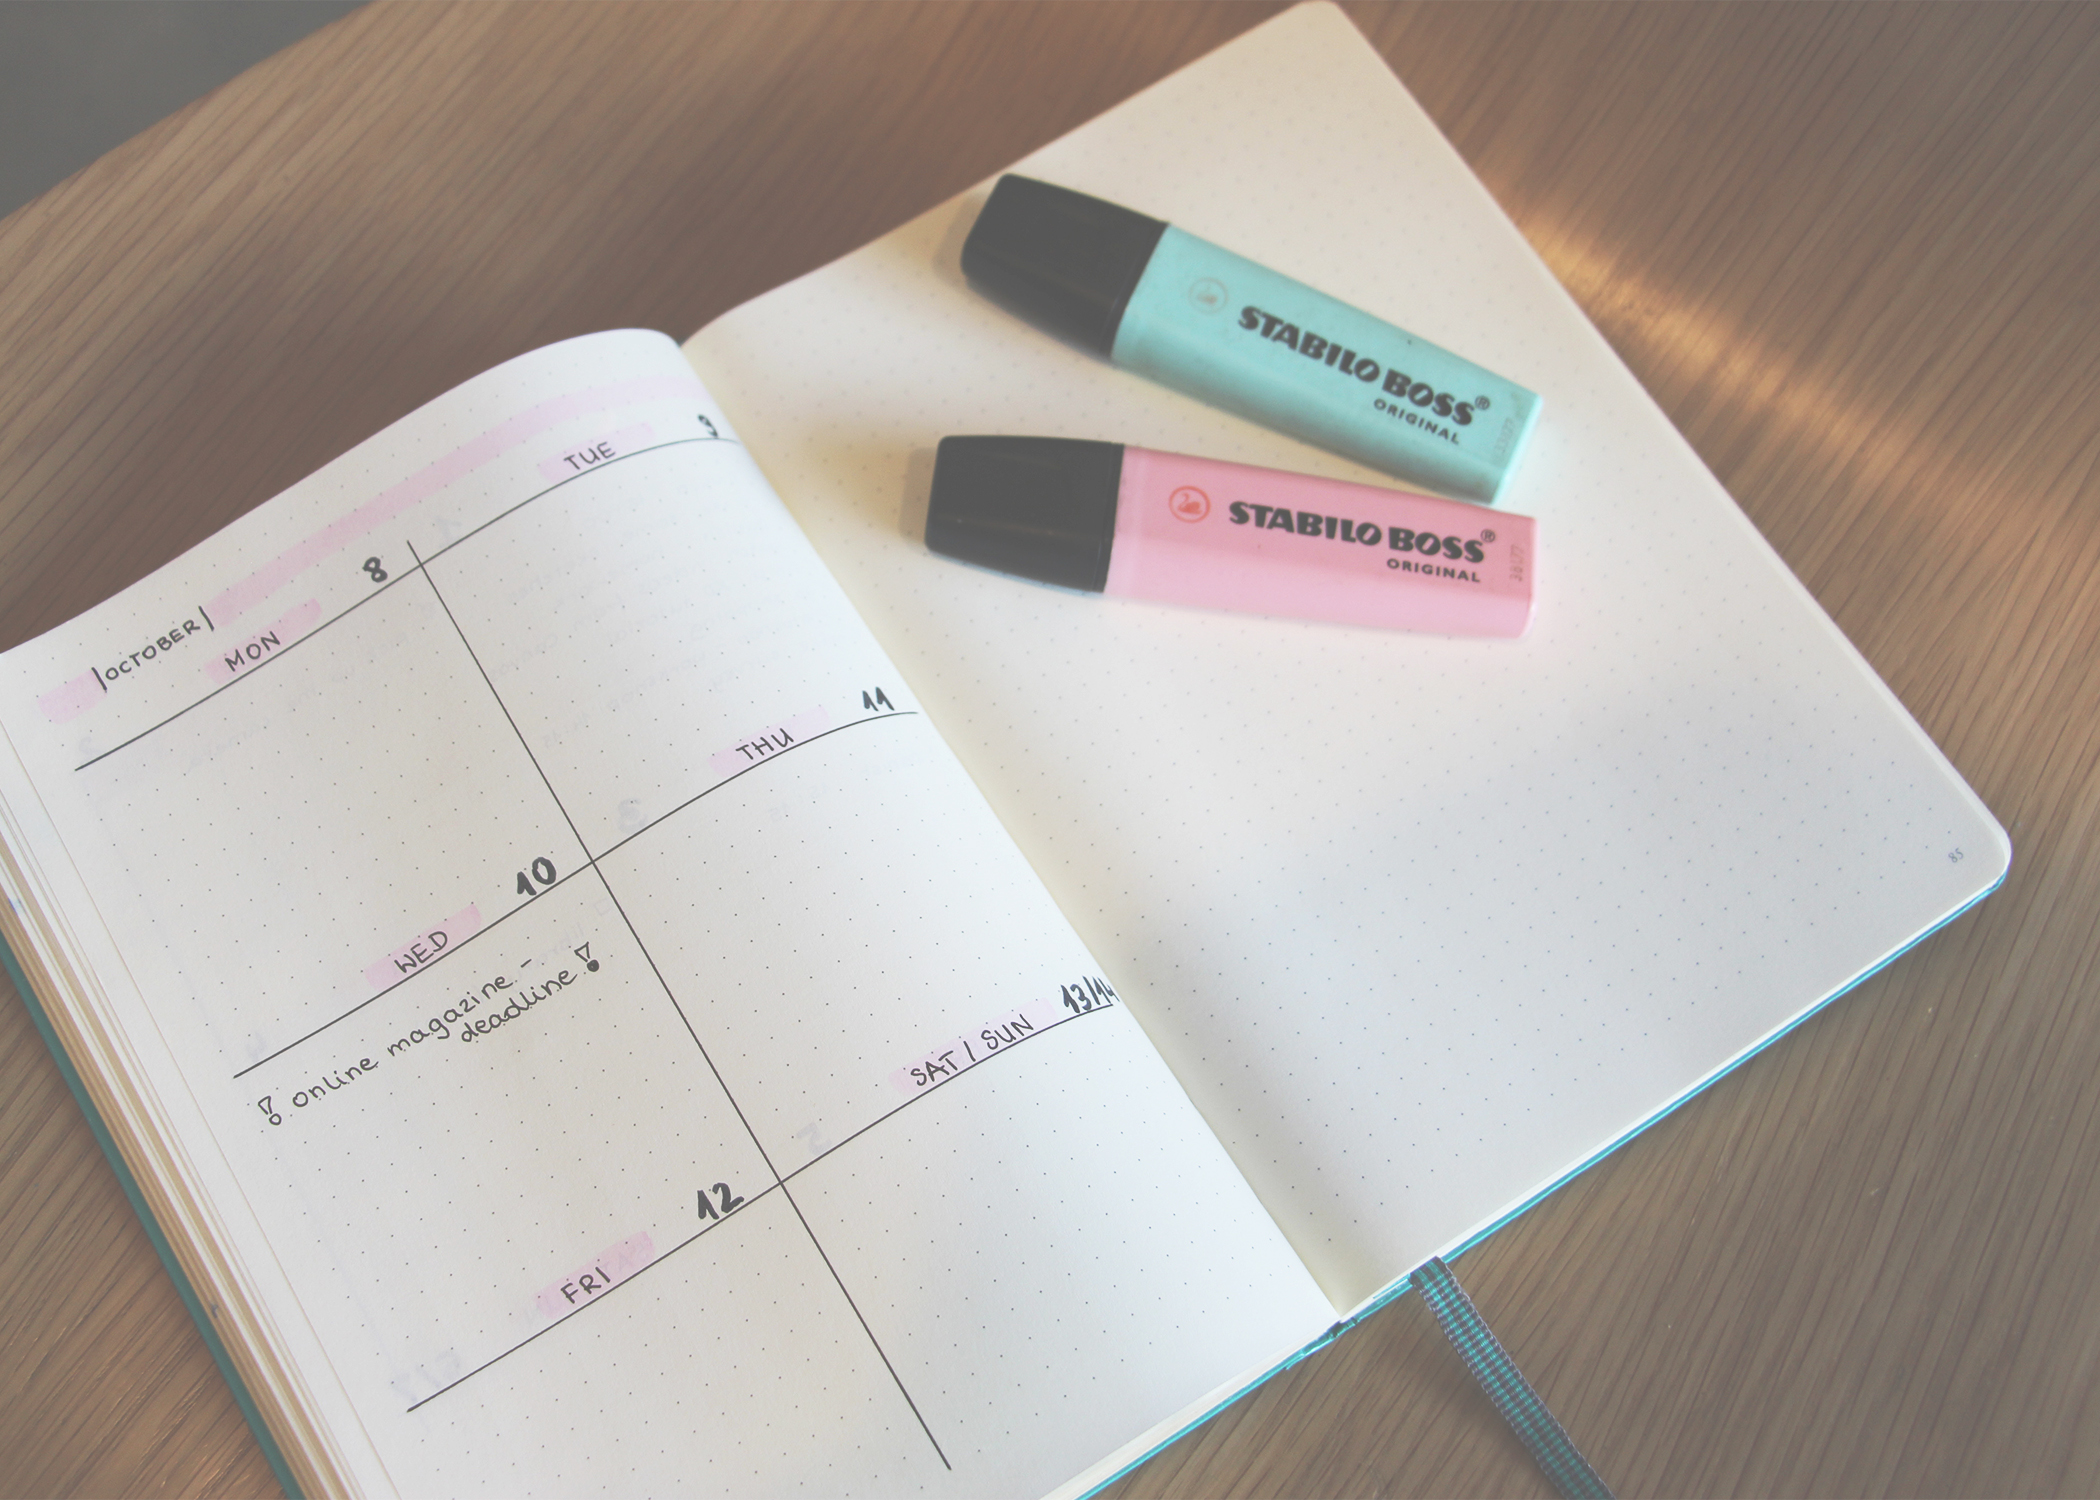 |OCTOBER|
MON 8
TUE 9
WED 10
! online magazine -
deadline !
THU 11
FRI 12
SAT / SUN 13/14
STABILO BOSS®
ORIGINAL
STABILO BOSS®
ORIGINAL
85